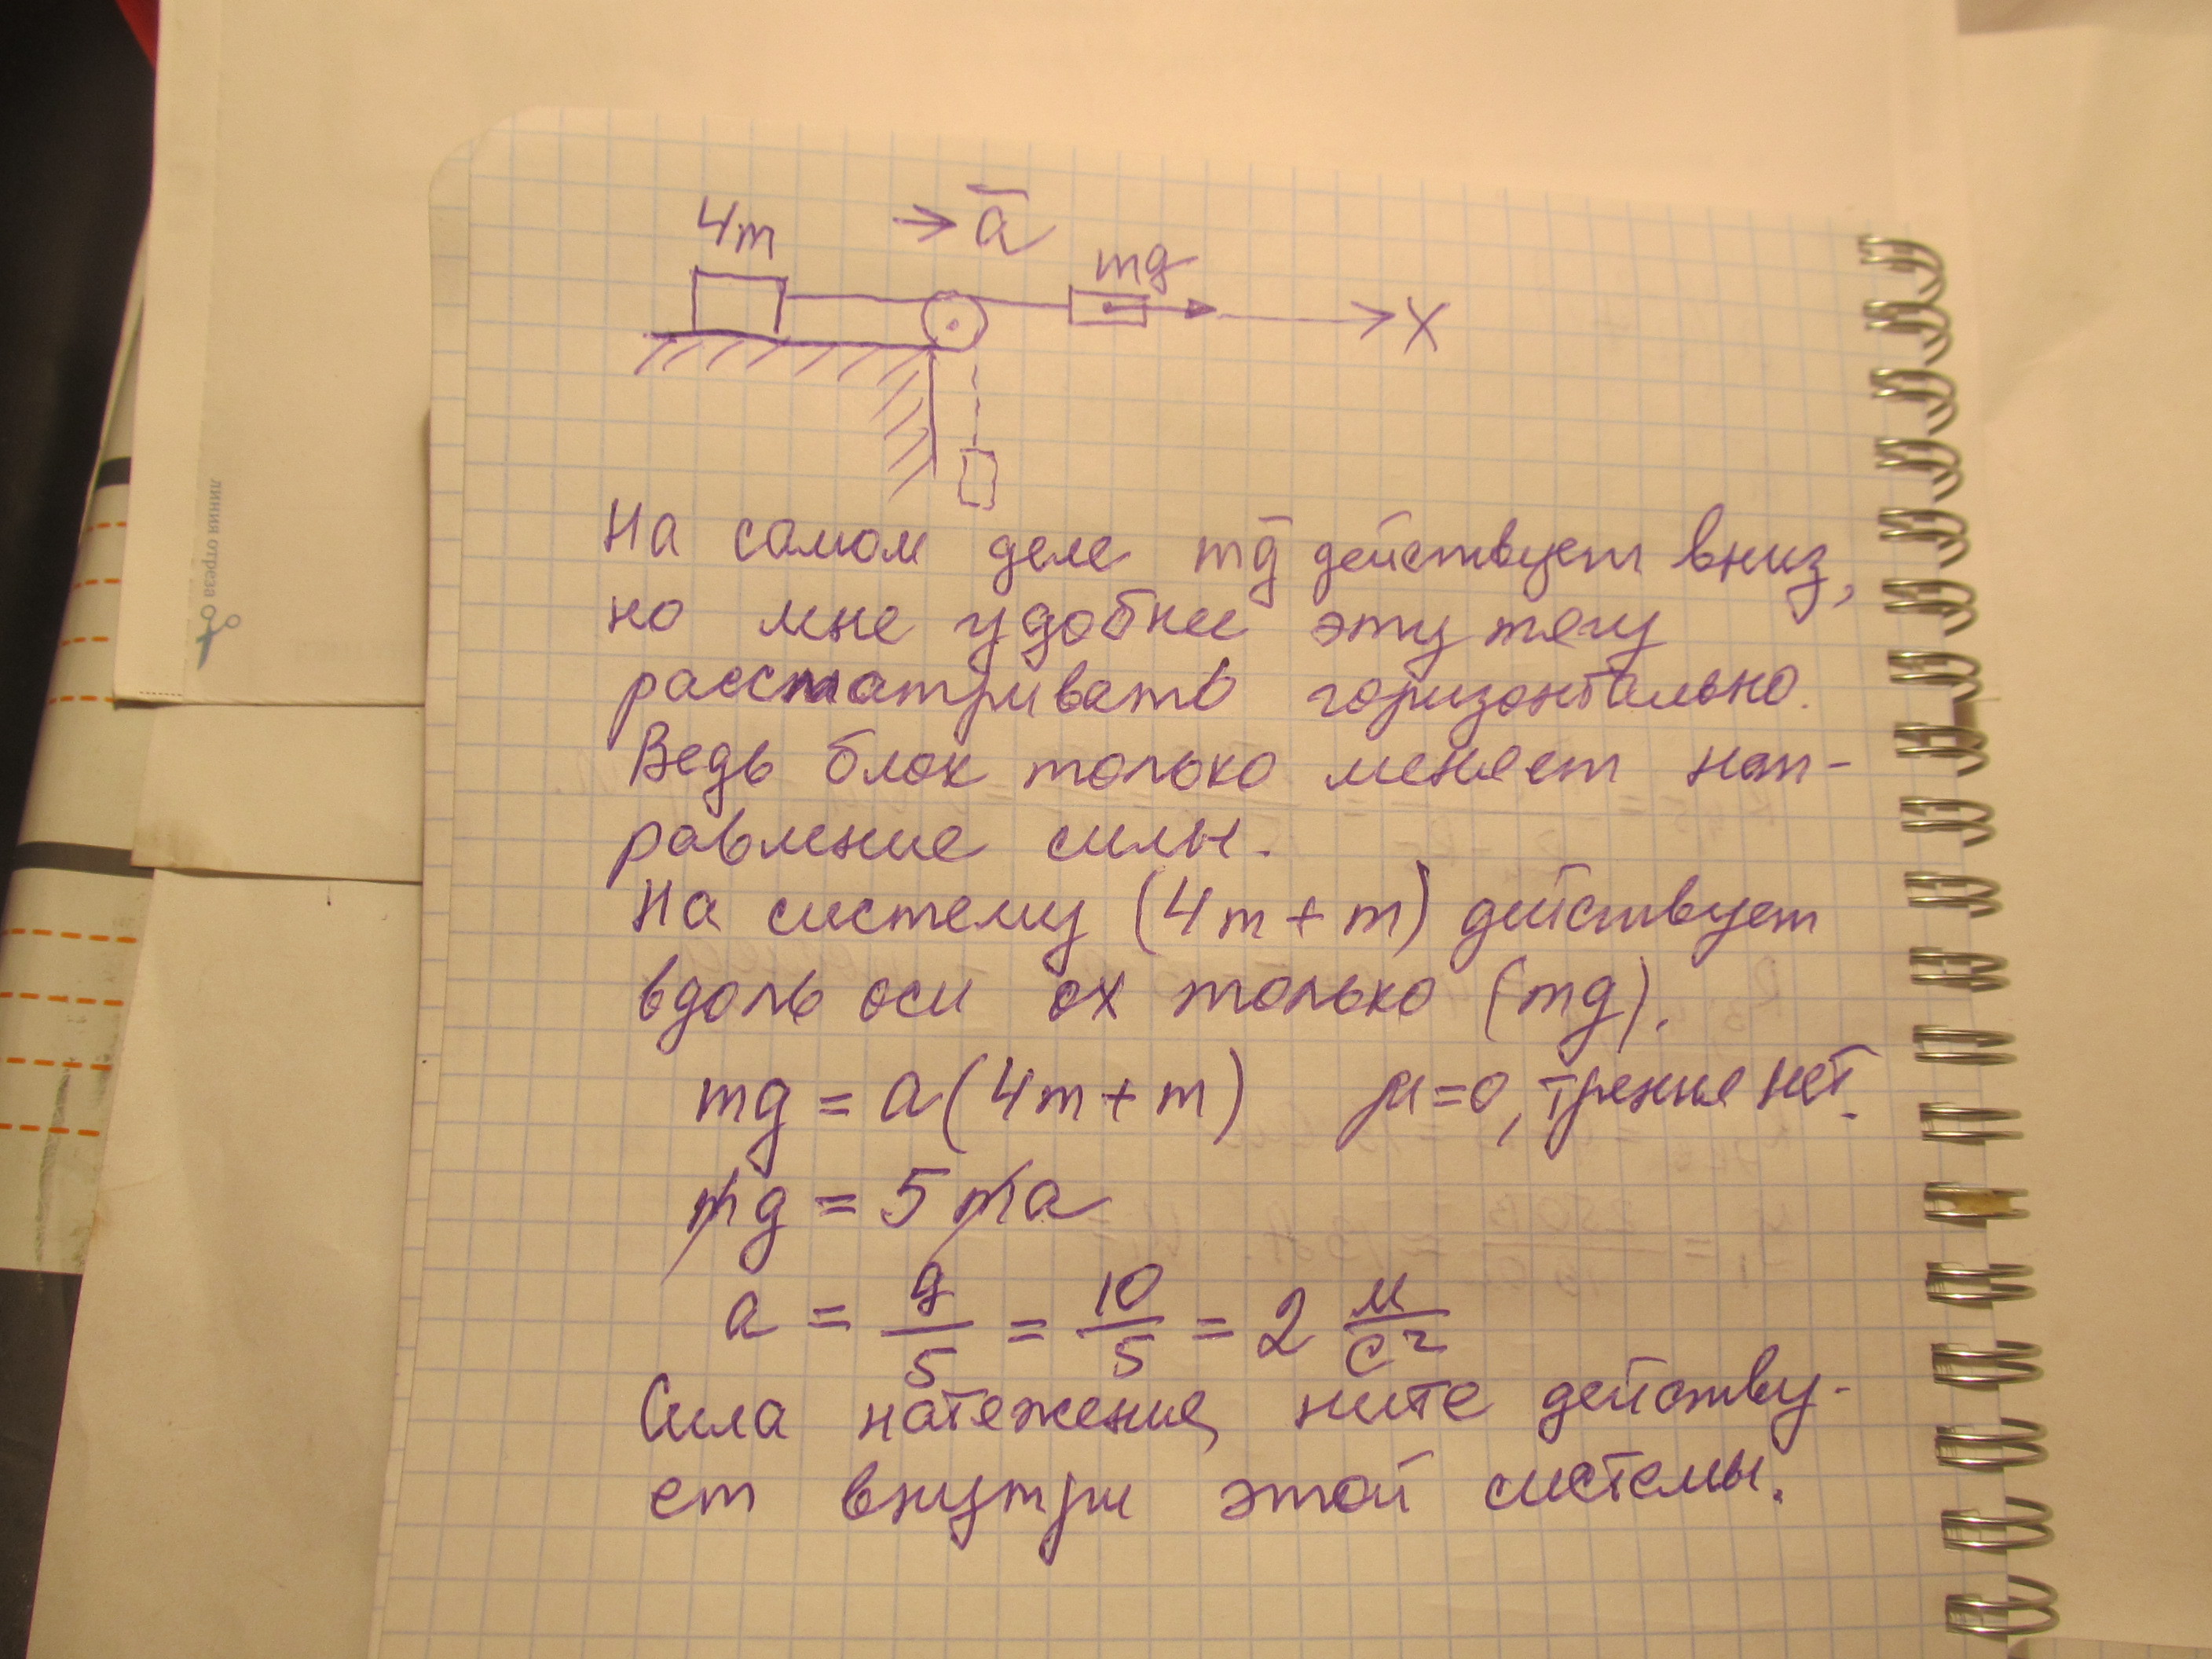 4m
→ a
mg
X
На самом деле mg действует вниз,
но мне удобнее эту тягу
рассматривать горизонтально.
Ведь блок только меняет нап-
равление силы.
На систему (4m + m) действует
вдоль оси ox только (mg).
mg = a(4m + m) μ=0, трения нет.
mg = 5ma
a = g/5 = 10/5 = 2 м/с²
Сила натяжения нити действу-
ет внутри этой системы.
линия отреза